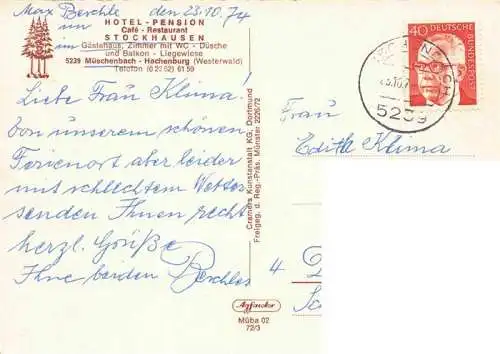 Max Berchle den 23.10.74
HOTEL - PENSION
Café - Restaurant
STOCKHAUSEN
Gästehaus, Zimmer mit WC - Dusche
und Balkon - Liegewiese
5239 Müschenbach - Hachenburg (Westerwald)
Telefon (0 26 62) 61 59
Liebe Frau Klima!
Von unserem schönen
Ferienort aber leider
mit schlechtem Wetter
senden Ihnen recht
herzl. Grüße
Ihre beiden Berchles
Cramers Kunstanstalt KG, Dortmund
Freigeg. d. Reg.-Präs. Münster 2226/72
Agfacolor
Müba 02
72/3
40 DEUTSCHE
BUNDESPOST
5239
Frau
Edith Klima
4